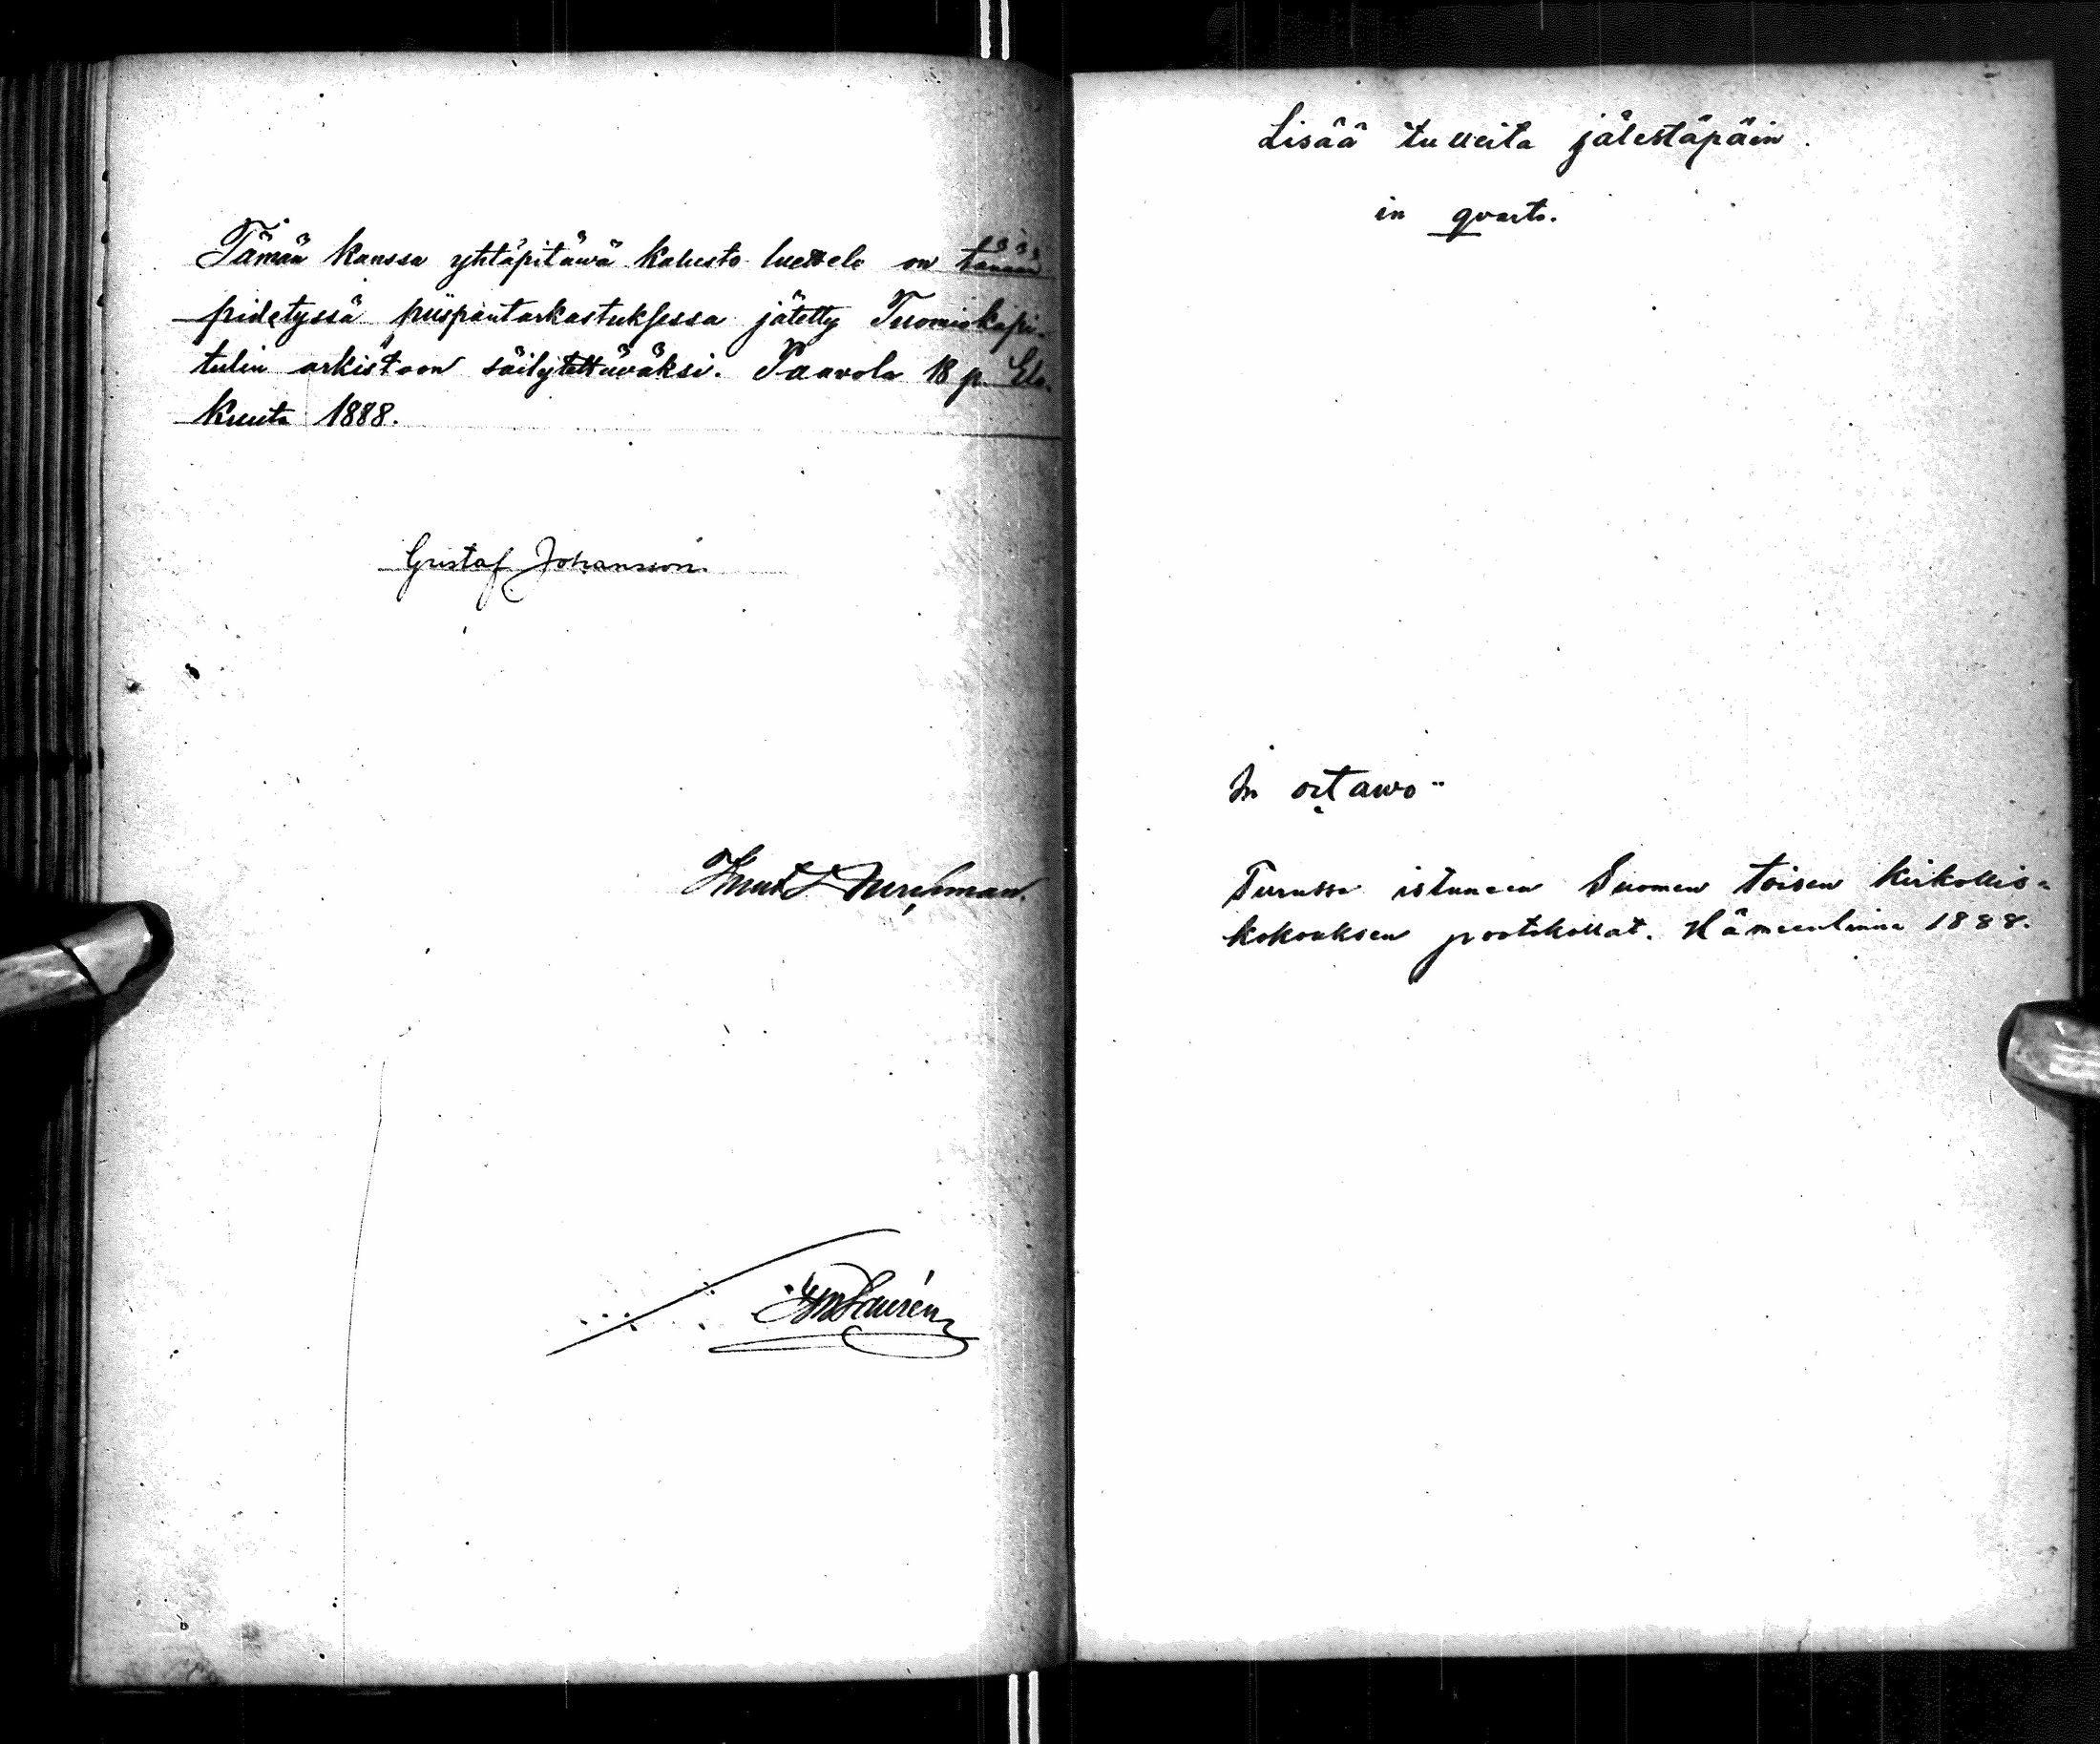 Tämän kanssa yhtäpitäwä kalusto luettelo on tänään
pidetyssä piispantarkastuksessa jätetty Tuomiokapi-
tulin arkistoon säilytettäwäksi. Paavola 18 p. Elo-
kuuta 1888.
Gustaf Johansson
Lisää tulleita jälestäpäin.
in qvarto.
In octawo
Turussa istuneen Suomen toisen kirkollis-
kokouksen protokollat. Hämeenlinna 1888.